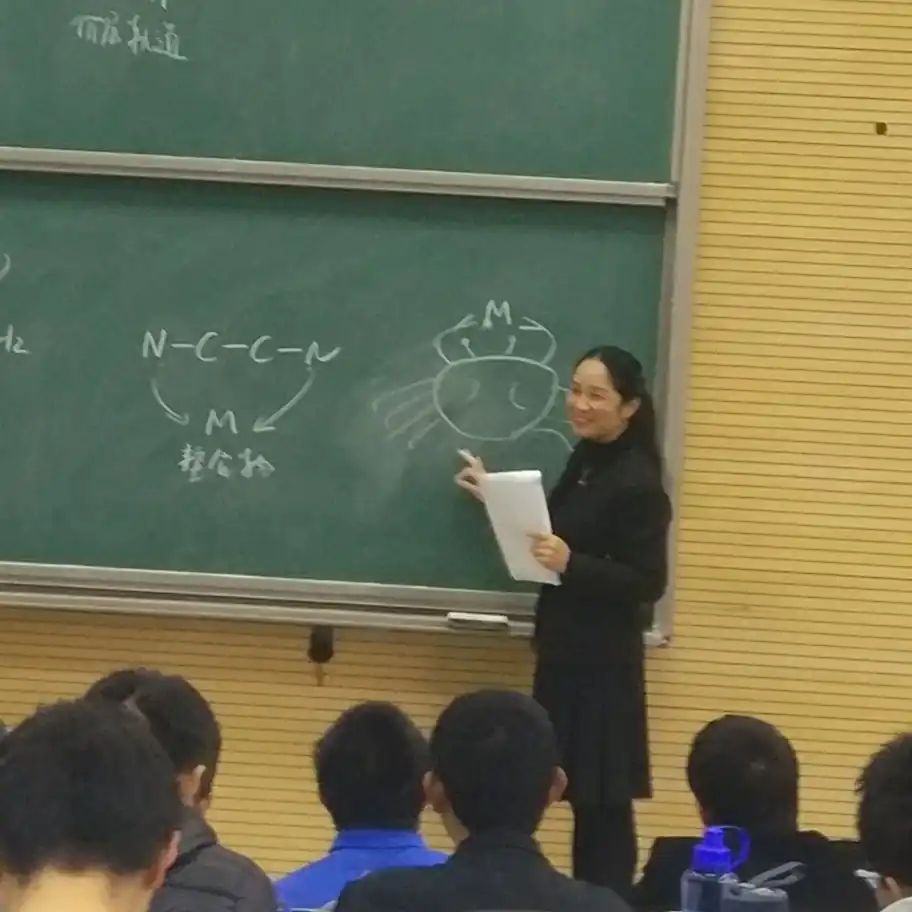 价层轨道
M
H₂
N-C-C-N
M
螯合物